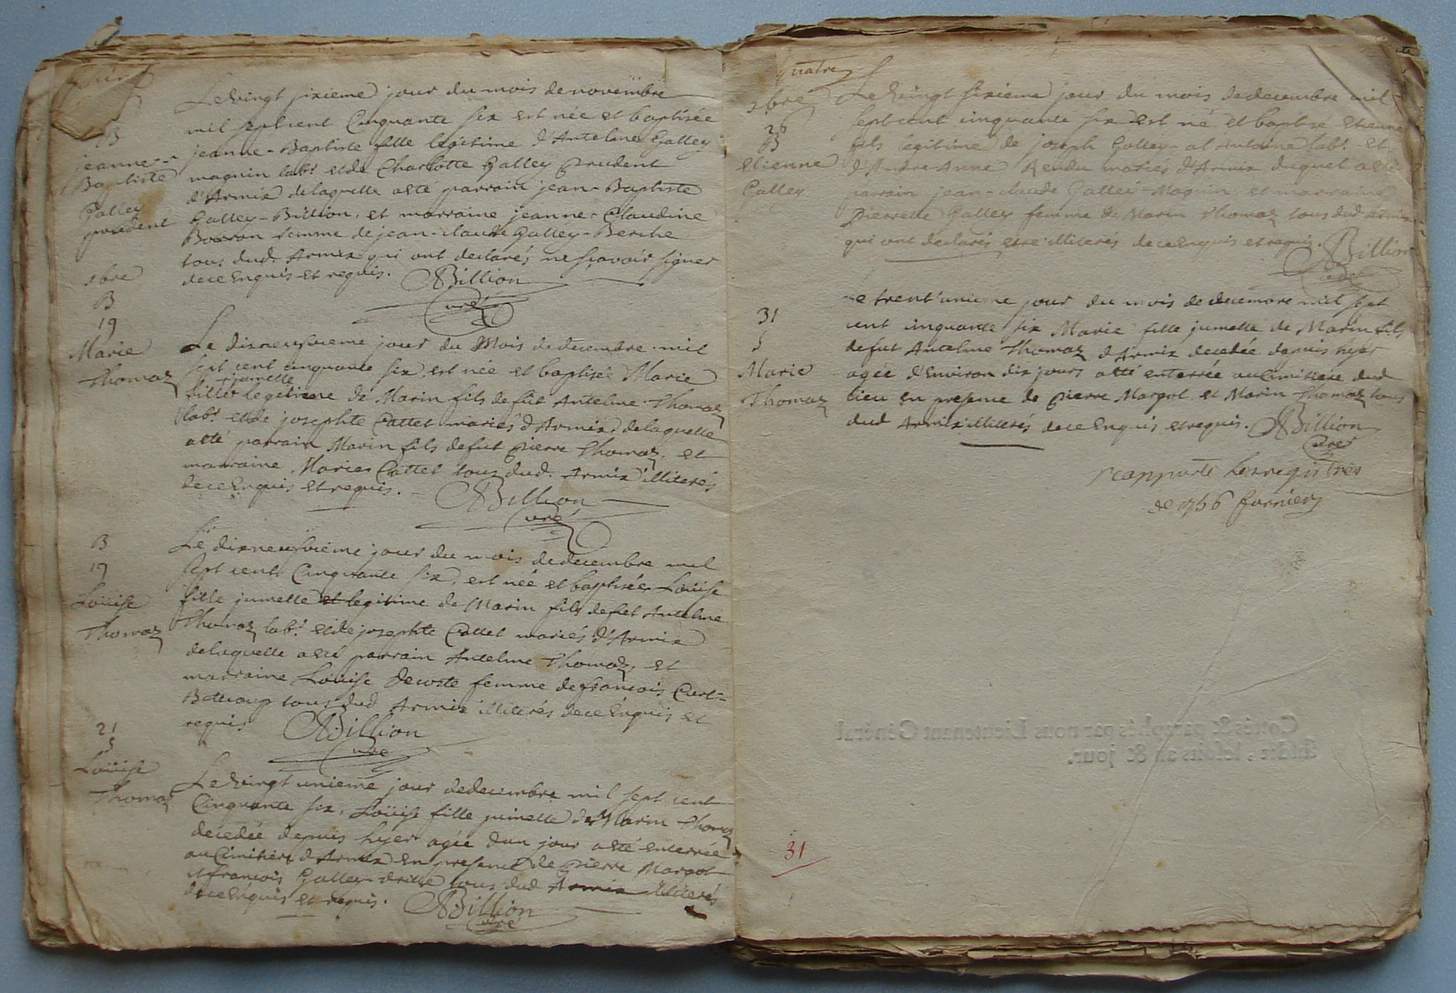 B
jeanne-
Baptiste
Galley
president
Le vingt sixieme jour du mois de novembre
mil sept cent Cinquante six est née et baptisée
jeanne-Baptiste fille legitime d'Antelme Galley
magnin labr et de Charlotte Galley President
d'Armix de laquelle a eté parrain jean-Baptiste
Galley-Billion, et marraine jeanne-Claudine
Bozon femme de jean-claude Galley-Berche
tous dud. Armix qui ont declarés ne sçavoir signer
de ce Enquis et requis. Billion
curé
xbre
B
19
Marie
Thomaz
Le dixneufvieme jour du Mois de decembre mil
sept cent cinquante six est née et baptisée Marie
jumelle
fille legitime de Marin fils de fut Antelme Thomaz
labr et de josephte Cattet mariés d'Armix de laquelle
a eté parrain Marin fils de fut pierre Thomaz, et
marraine Marie Cattet tous dud. Armix illiterés
de ce Enquis et requis. Billion
curé
B
19
Loüise
Thomaz
Le dixneufvième jour du mois de decembre mil
sept cent Cinquante six, est née et baptisée Loüise
fille jumelle et legitime de Marin fils de fut Antelme
Thomaz labr et de josephte Cattet mariés d'Armix
de laquelle a eté parrain Antelme Thomaz, et
marraine Loüise femme de francois
tous dud Armix illiterés de ce Enquis et
requis Billion
curé
21
s
Loüise
Thomaz
Le vingt unieme jour de decembre mil sept cent
Cinquante six, Loüise fille jumelle de Marin Thomaz
decedée depuis hyer agée d'un jour a eté enterrée
au Cimitiere d'Armix En presence de pierre Margot
et francois Galley-drille tous dud Armix illiterés
de ce Enquis et requis. Billion
curé
quatre
xbre
28
B
Etienne
Galley
Le vingt sixieme jour du mois de decembre mil
sept cent cinquante six est né et baptisé Etienne
fils légitime de joseph Galley- labr et
d'Andre Anne Rendu mariés d'Armix duquel a eté
parrain jean-claude Galley-Magnin, et marraine
pierrette Galley femme de Marin Thomaz tous dud Armix
qui ont declarés etre illiterés de ce Enquis et requis. Billion
curé
31
s
Marie
Thomaz
Le trent'unieme jour du mois de decembre mil sept
cent cinquante six Marie fille jumelle de Marin fils
de fut Antelme Thomaz d'Armix decedée depuis hyer
agée d'Environ dix jours a eté enterrée au Cimitiere dud
lieu En presence de pierre Margot et Marin Thomaz tous
dud Armix illiterés de ce Enquis et requis. Billion
curé
rapporté les registres
de 1756
Cottés & paraphés par nous Lieutenant Général
susdit, lesdits an & jour.
31